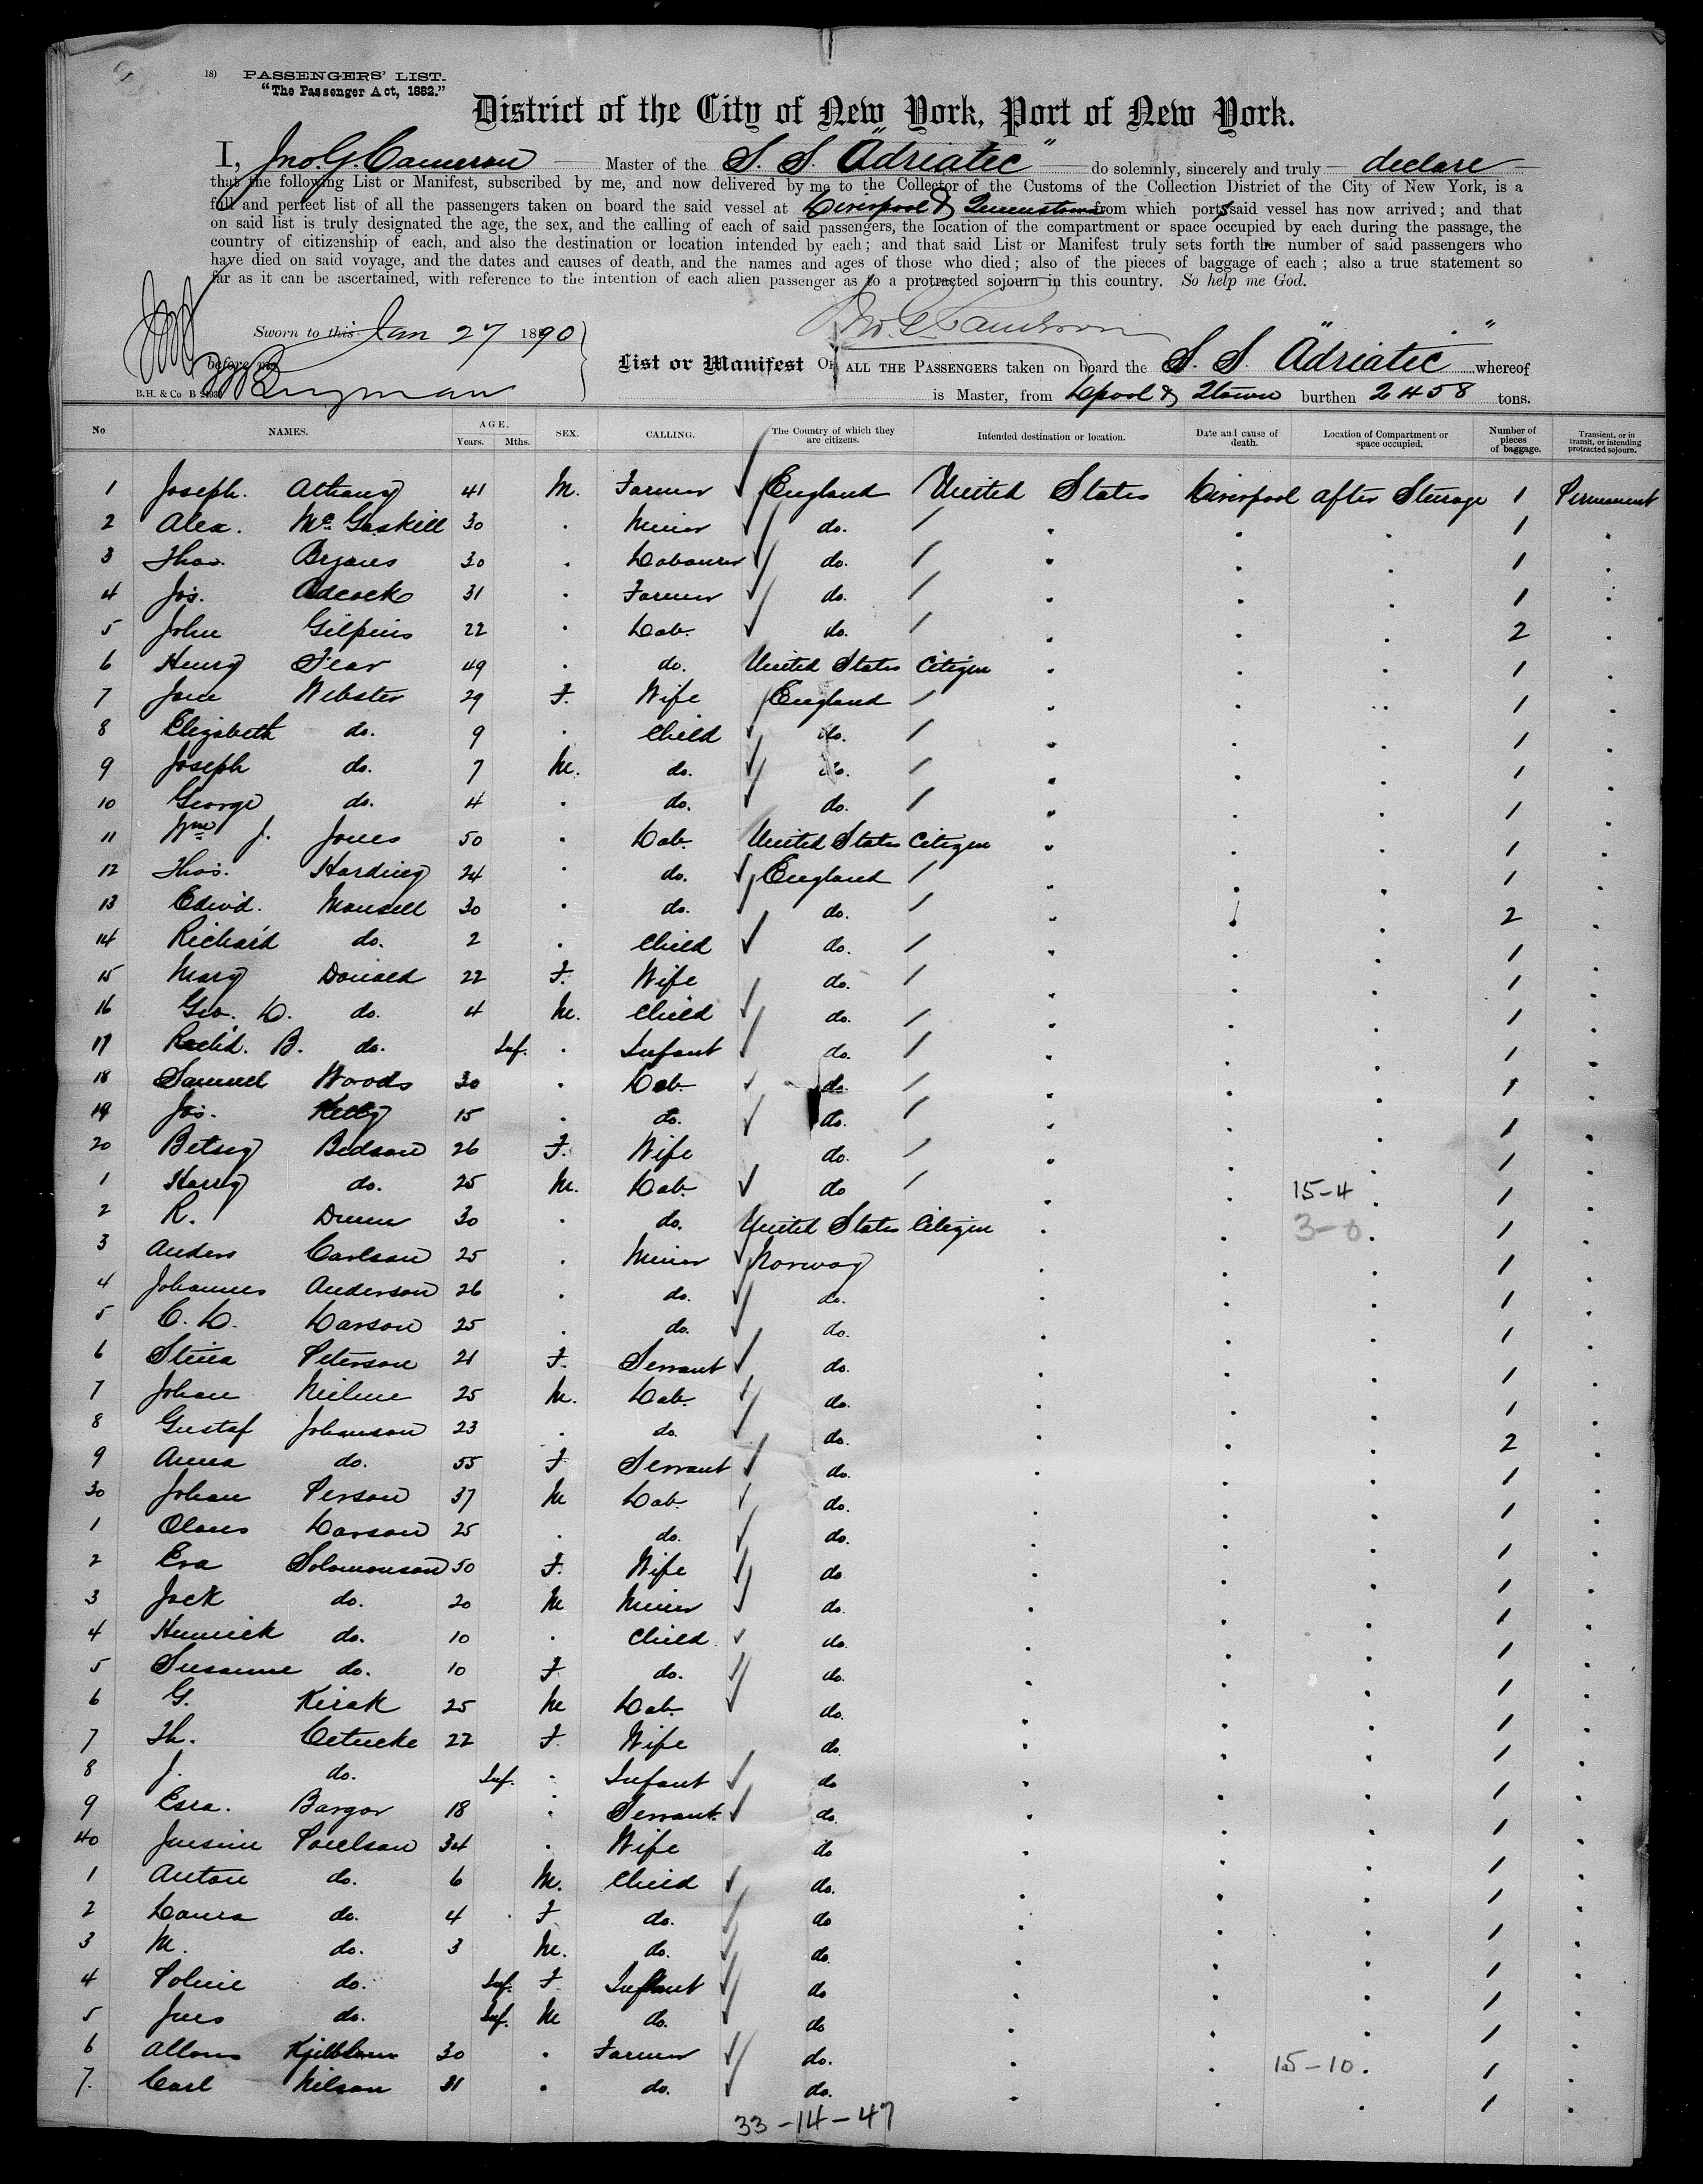 18) PASSENGERS' LIST.
"The Passenger Act, 1882."
District of the City of New York, Port of New York.
I, Jno. G Cameron Master of the S. S. "Adriatic" do solemnly, sincerely and truly declare
that the following List or Manifest, subscribed by me, and now delivered by me to the Collector of the Customs of the Collection District of the City of New York, is a
full and perfect list of all the passengers taken on board the said vessel at Liverpool & Queenstown from which ports said vessel has now arrived; and that
on said list is truly designated the age, the sex, and the calling of each of said passengers, the location of the compartment or space occupied by each during the passage, the
country of citizenship of each, and also the destination or location intended by each; and that said List or Manifest truly sets forth the number of said passengers who
have died on said voyage, and the dates and causes of death, and the names and ages of those who died; also of the pieces of baggage of each; also a true statement so
far as it can be ascertained, with reference to the intention of each alien passenger as to a protracted sojourn in this country. So help me God.
Sworn to this Jan 27 1890
before me
B.H. & Co B
List or Manifest OF ALL THE PASSENGERS taken on board the S. S. "Adriatic" whereof
is Master, from Lpool & Qtown burthen 2458 tons.
No NAMES. AGE. Years. Mths. SEX. CALLING. The Country of which they are citizens. Intended destination or location. Date and cause of death. Location of Compartment or space occupied. Number of pieces of baggage. Transient, or in transit, or intending protracted sojourn.
1 Joseph. 41 M. Farmer England United States Liverpool after Steerage 1 Permanent
2 Alex. McGaskill 30 . Miner do. 1
3 Thos. Brynes 30 . Labourer do. 1
4 Jos. Adcock 31 . Farmer do. 1
5 John Gilpins 22 . Lab. do. 2
6 Henry Fear 49 . do. United States Citizen 1
7 Jane Webster 29 F. Wife England 1
8 Elizabeth do. 9 . Child do. 1
9 Joseph do. 7 M. do. do. 1
10 George do. 4 . do. do. 1
11 Wm J. Jones 50 . Lab. United States Citizen 1
12 Thos. Harding 24 . do. England 1
13 Edwd. Mansell 30 . do. do. 2
14 Richard do. 2 . Child do. 1
15 Mary Donald 22 F. Wife do. 1
16 Geo. L. do. 4 M. Child do. 1
17 Richd. B. do. Inf. . Infant do. 1
18 Samuel Woods 30 . Lab. do. 1
19 Jos. Kelly 15 . do. do. 1
20 Betsey Bedson 26 F. Wife do. 1
1 Harry do. 25 M. Lab. do 15-4 1
2 R. Dunn 30 . do. United States Citizen 3-0 1
3 Anders Carlson 25 . Miner Norway 1
4 Johannes Anderson 26 . do. do. 1
5 C. L. Larson 25 . do. do. 1
6 Stina Peterson 21 F. Servant do. 1
7 Johan 25 M. Lab. do. 1
8 Gustaf Johanson 23 . do. do. 2
9 Anna do. 55 F Servant do. 1
30 Johan Person 37 M Lab. do. 1
1 Olaus Larson 25 . do. do. 1
2 Eva Solomonson 50 F. Wife do 1
3 Jack do. 20 M Miner do. 1
4 do. 10 . Child. do. 1
5 Susanne do. 10 F do. do. 1
6 G. Kirak 25 M Lab. do. 1
7 Th. 22 F. Wife do. 1
8 J. do. Inf. . Infant do 1
9 Esra. Bargor 18 . Servant. do. 1
40 Poulson 34 . Wife do 1
1 Anton do. 6 M. Child do. 1
2 Laura do. 4 F do. do 1
3 M. do. 3 M. do. do 1
4 do. Inf. F. Infant do 1
5 Jens do. Inf. M do. do 1
6 30 . Farmer do. 15-10. 1
7. Carl Nilson 31 . do. do. 1
33-14-47